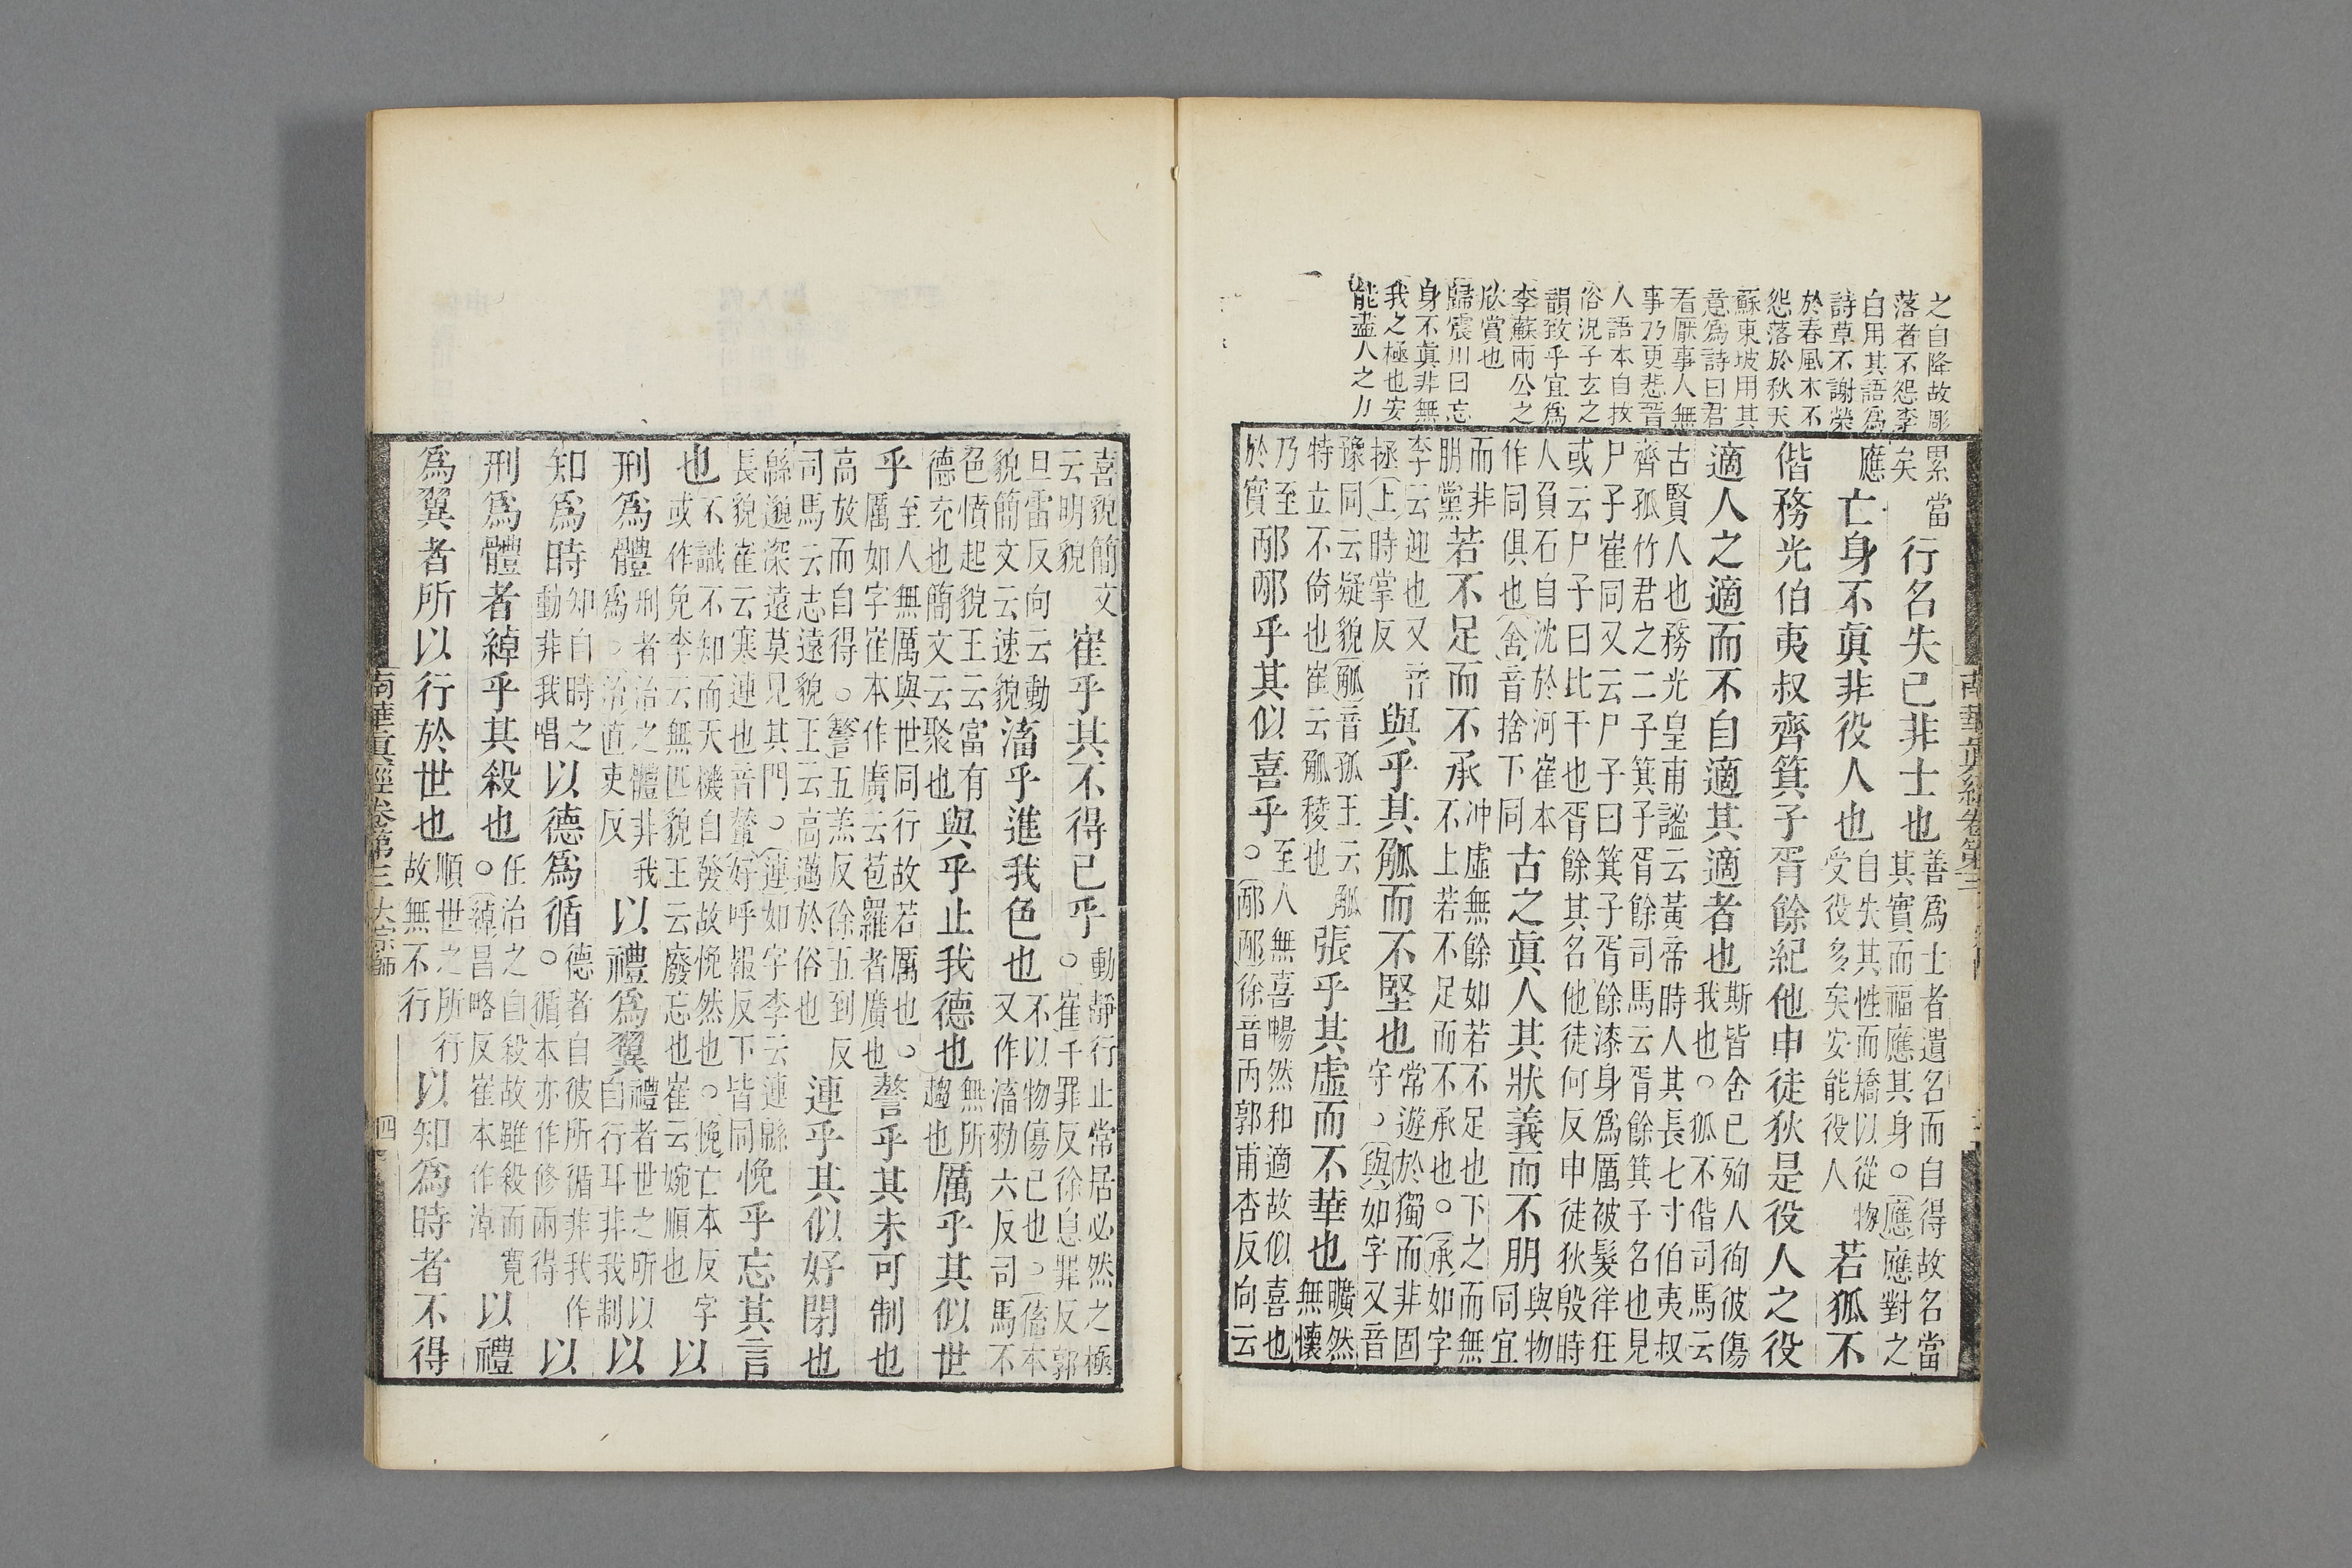 之自降故彫
落者不怨李
白用其語爲
詩草不謝榮
於春風木不
怨落於秋天
蘇東坡用其
意爲詩曰君
看厭事人無
事乃更悲晉
人語本自拔
俗況子玄之
韻致乎宜爲
李蘇兩公之
欣賞也
歸震川曰忘
身不眞非無
我之極也安
能盡人之力
累當矣行名失己非士也善爲士者遺名而自得故名當其實而福應其身○應應對之
應亡身不眞非役人也自失其性而矯以從物受役多矣安能役人若狐不
偕務光伯夷叔齊箕子胥餘紀他申徒狄是役人之役
適人之適而不自適其適者也斯皆舍己殉人徇彼傷我也○狐不偕司馬云
古賢人也務光皇甫謐云黃帝時人其長七寸伯夷叔
齊孤竹君之二子箕子胥餘司馬云胥餘箕子名也見
尸子崔同又云尸子曰箕子胥餘漆身爲厲被髮徉狂
或云尸子曰比干也胥餘其名他徒何反申徒狄殷時
人負石自沈於河崔本作同俱也舍音捨下同古之眞人其狀義而不朋與物同宜
而非朋黨若不足而不承冲虛無餘如若不足也下之而無不上若不足而不承也○承如字
李云迎也又音拯上時掌反與乎其觚而不堅也常遊於獨而非固守○與如字又音
豫同云疑貌觚音孤王云觚特立不倚也崔云觚稜也張乎其虛而不華也曠然無懷
乃至於實邴邴乎其似喜乎至人無喜暢然和適故似喜也○邴邴徐音丙郭甫杏反向云
喜貌簡文云明貌崔乎其不得已乎動靜行止常居必然之極○崔千罪反徐息罪反郭
且雷反向云動貌簡文云速貌滀乎進我色也不以物傷己也○滀本又作滀勑六反司馬不
色憤起貌王云富有德充也簡文云聚也與乎止我德也無所趨也厲乎其似世
乎至人無厲與世同行故若厲也○厲如字崔本作廣云苞羅者廣也謷乎其未可制也
高放而自得○謷五羔反徐五到反司馬云志遠貌王云高邁於俗也連乎其似好閉也
緜邈深遠莫見其門○連如字李云連緜長貌崔云蹇連也音輦好呼報反下皆同悗乎忘其言
也不識不知而天機自發故悗然也○悗亡本反字或作免李云無匹貌王云廢忘也崔云婉順也以
刑爲體刑者治之體非我爲○治直吏反以禮爲翼禮者世之所以自行耳非我制以
知爲時知自時之動非我唱以德爲循德者自彼所循非我作○循本亦作修兩得以
刑爲體者綽乎其殺也任治之自殺故雖殺而寬○綽昌略反崔本作淖以禮
爲翼者所以行於世也順世之所行故無不行以知爲時者不得
南華眞經卷第三 大宗師 四